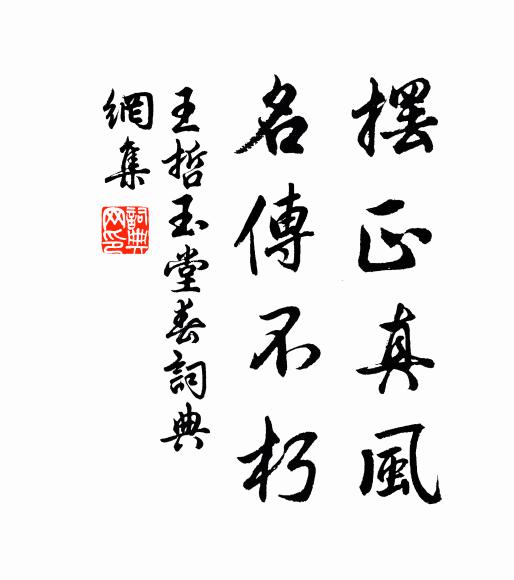 擺正真風
名傳不朽
王哲玉堂春詞典
網集
詞典網印